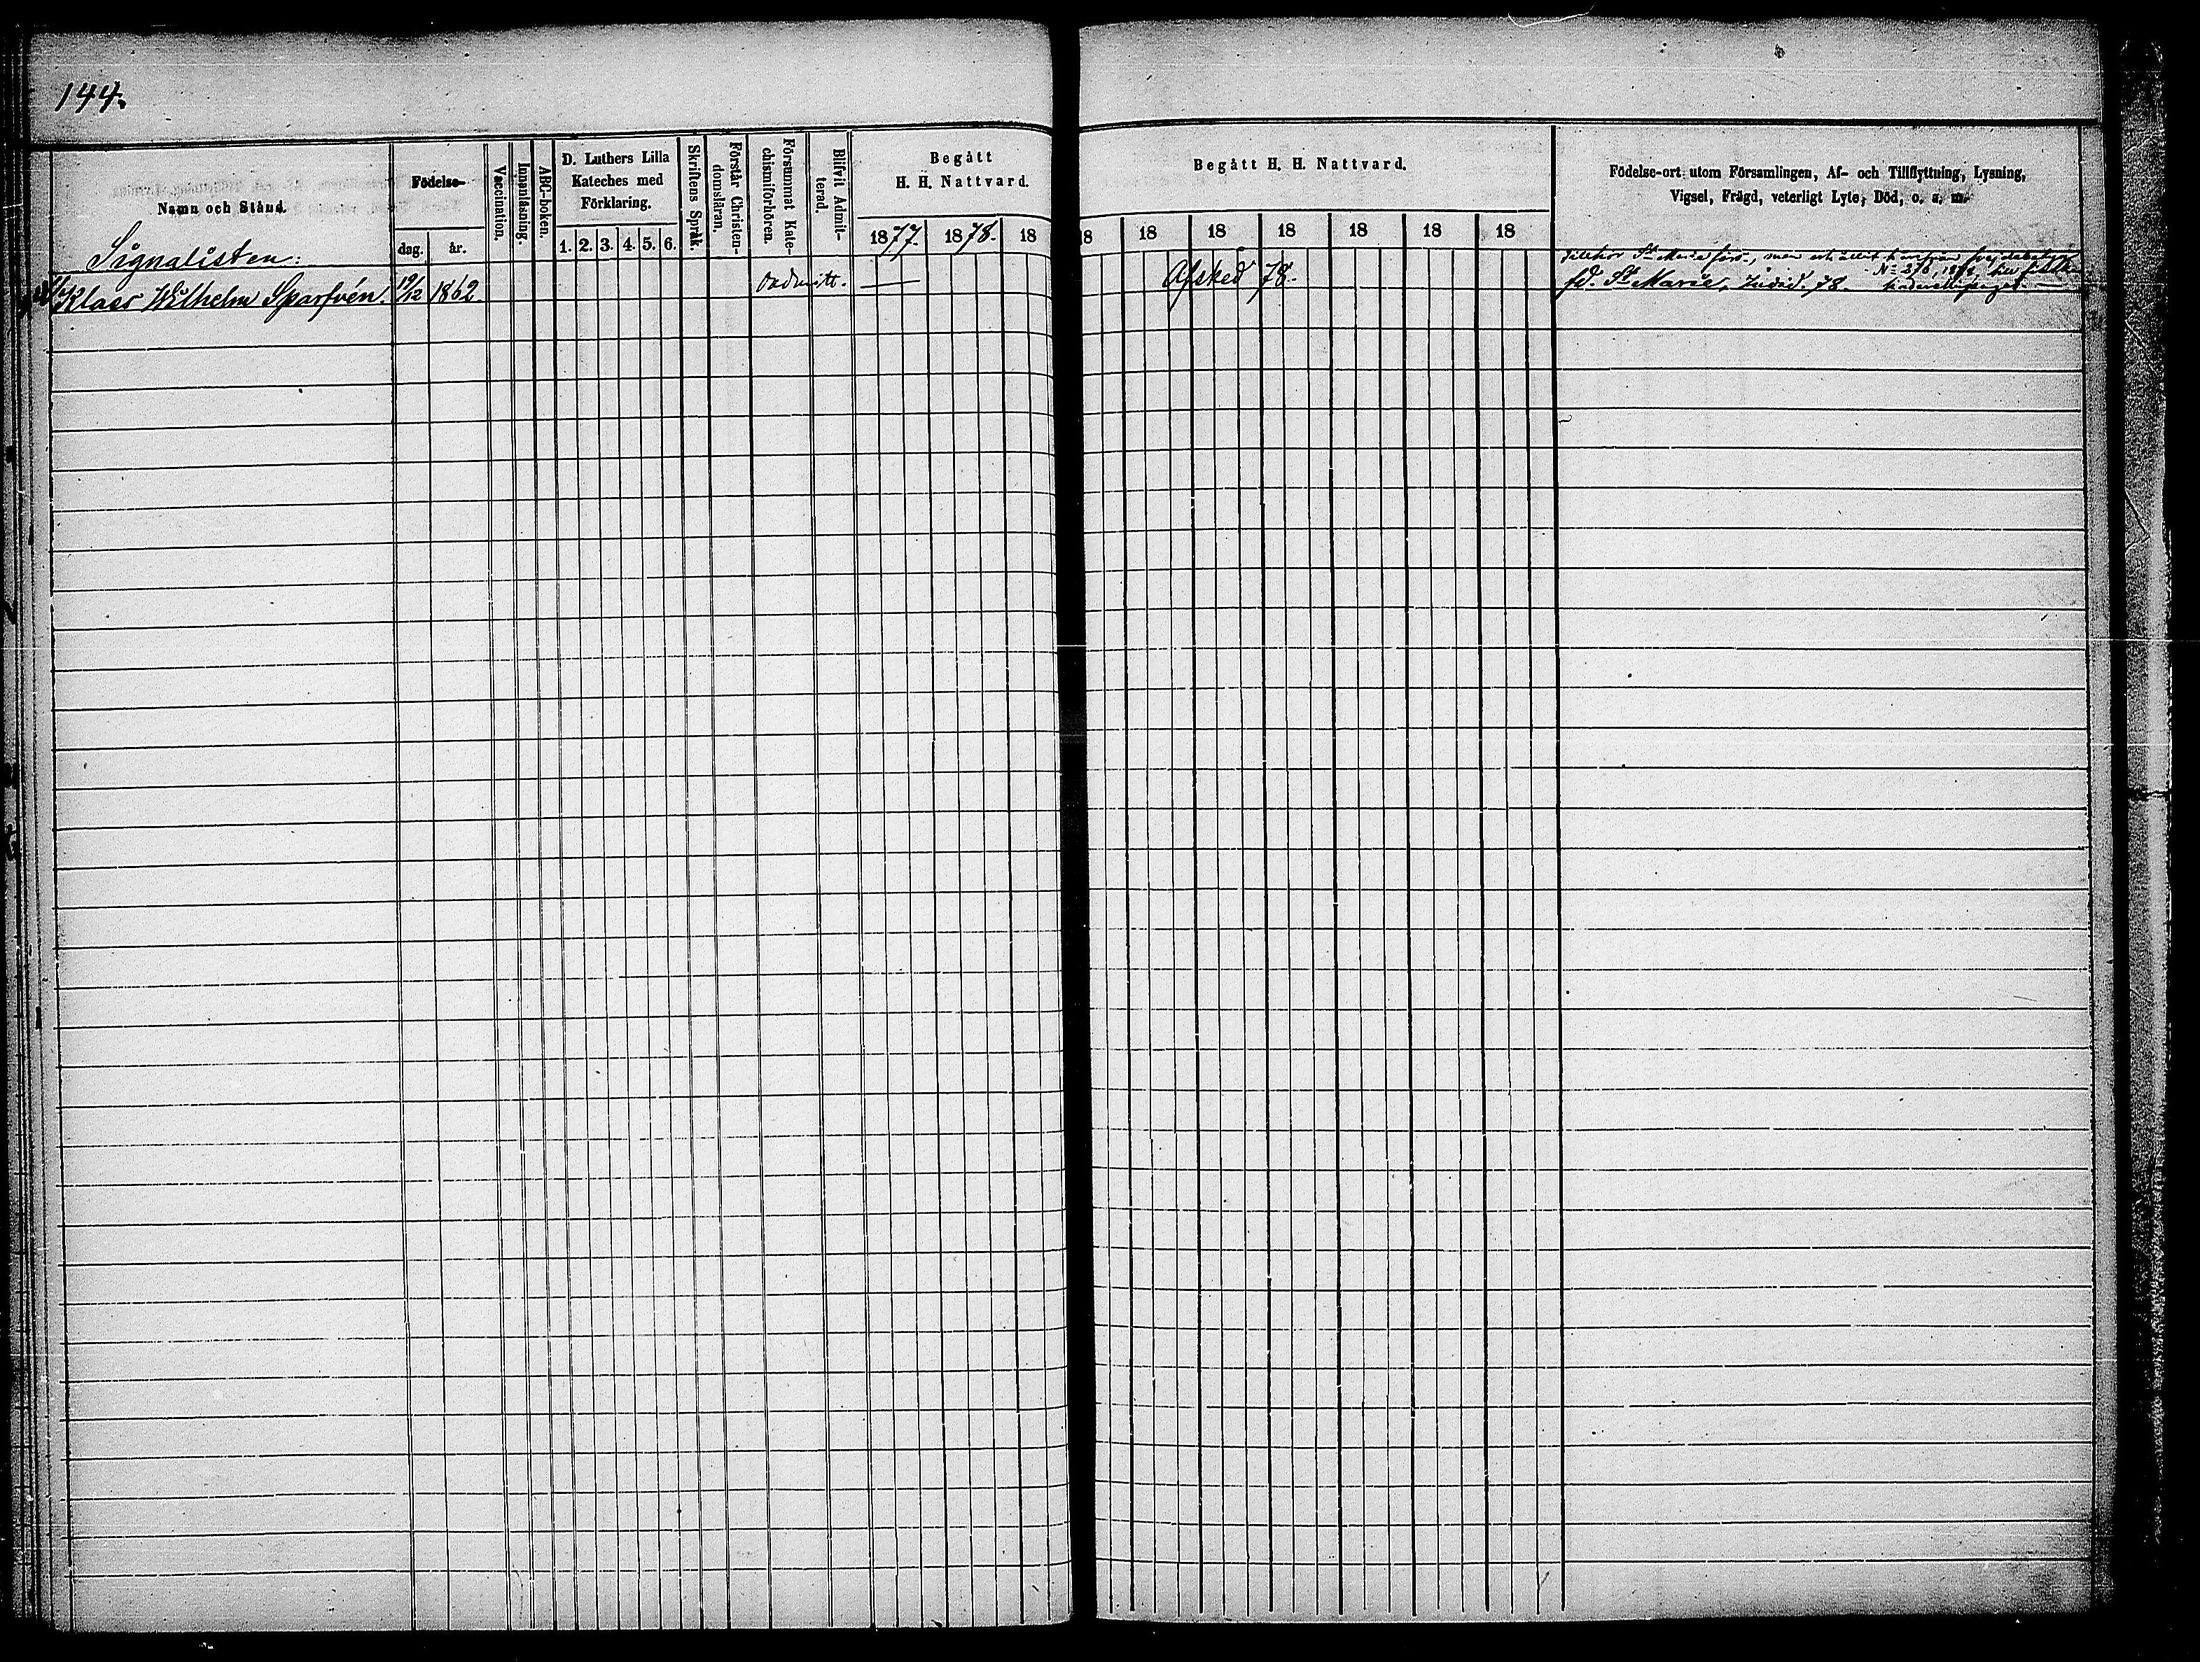 144.
Namn och Stånd.
Födelse-
dag. år.
Vaccination.
Innanläsning.
ABC-boken.
D. Luthers Lilla
Kateches med
Förklaring.
1. 2. 3. 4. 5. 6.
Skriftens Språk.
Förstår Christen-
domsläran.
Försummat Kate-
chismiförhören.
Blifvit Admit-
terad.
Begått
H. H. Nattvard.
1877. 1878. 18
Begått H. H. Nattvard.
18 18 18 18 18 18 18
Födelse-ort utom Församlingen, Af- och Tillflyttning, Lysning,
Vigsel, Frägd, veterligt Lyte, Död, o. s. m.
Signalisten:
Klaes Wilhelm Sparfvén. 19/12 1862. oadmitt. — Afsked 78.
tillhör St Marie förs., men
No 276, 1878, till
fd. St Marie, 78.